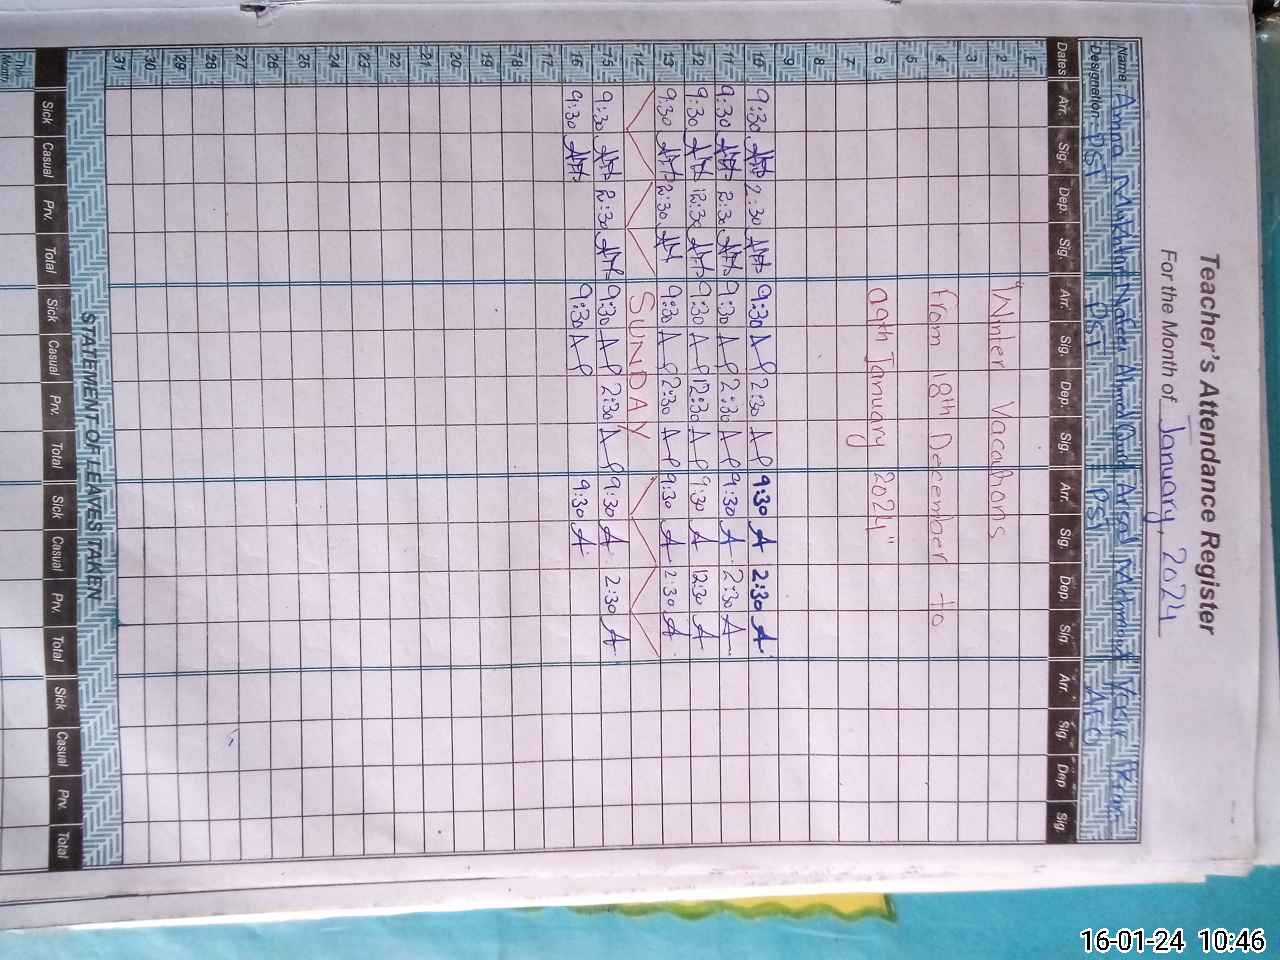 Teacher's Attendance Register
For the Month of January, 2024
Name:- Amna Mukhtar Nafees Ahmed Arsad Mehmood
Designation:- PST PST PST AEO
Dates Arr. Sig. Dep. Sig. Arr. Sig. Dep. Sig. Arr. Sig. Dep. Sig. Arr. Sig. Dep Sig.
1
2 "Winter Vacations
3
4 from 18th December to
5
6 09th January 2024"
7
8
9
10 9:30 2:30 9:30 2:30 9:30 A 2:30 A
11 9:30 2:30 9:30 2:30 9:30 A 2:30 A
12 9:30 12:30 9:30 12:30 9:30 A 12:30 A
13 9:30 2:30 9:30 2:30 9:30 A 2:30 A
14 SUNDAY
15 9:30 2:30 9:30 2:30 9:30 A 2:30 A
16 9:30 9:30 9:30 A
17
18
19
20
21
22
23
24
25
26
27
28
29
30
31
STATEMENT OF LEAVES TAKEN
Sick Casual Prv. Total Sick Casual Prv. Total Sick Casual Prv. Total Sick Casual Prv. Total
This Month
16-01-24 10:46